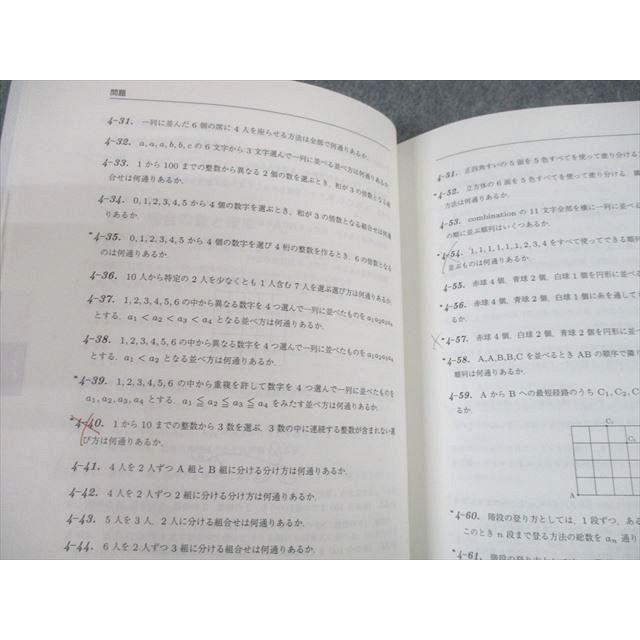 問題
4-31. 一列に並んだ 6 個の席に 4 人を座らせる方法は全部で何通りあるか.
4-32. a, a, a, b, b, c の 6 文字から 3 文字選んで一列に並べる並べ方は何通りあるか.
4-33. 1 から 100 までの整数から異なる 2 個の数を選ぶとき, 和が 3 の倍数となる組
合せは何通りあるか.
4-34. 0, 1, 2, 3, 4, 5 から 4 個の数字を選ぶとき, 和が 3 の倍数となる組合せは何通
りあるか.
*4-35. 0, 1, 2, 3, 4, 5 から 4 個の数字を選び 4 桁の整数を作るとき, 6 の倍数となる
のは何通りあるか.
4-36. 10 人から特定の 2 人を少なくとも 1 人含む 7 人を選ぶ選び方は何通りあるか.
4-37. 1, 2, 3, 4, 5, 6 の中から異なる数字を 4 つ選んで一列に並べたものを a₁a₂a₃a₄
とする. a₁ < a₂ < a₃ < a₄ となる並べ方は何通りあるか.
4-38. 1, 2, 3, 4, 5, 6 の中から異なる数字を 4 つ選んで一列に並べたものを a₁a₂a₃a₄
とする. a₁ < a₂ となる並べ方は何通りあるか.
*4-39. 1, 2, 3, 4, 5, 6 の中から重複を許して数字を 4 つ選んで一列に並べたものを
a₁, a₂, a₃, a₄ とする. a₁ ≦ a₂ ≦ a₃ ≦ a₄ をみたす並べ方は何通りあるか.
*4-40. 1 から 10 までの整数から 3 数を選ぶ. 3 数の中に連続する整数が含まれない選
び方は何通りあるか.
4-41. 4 人を 2 人ずつ A 組と B 組に分ける分け方は何通りあるか.
4-42. 4 人を 2 人ずつ 2 組に分ける分け方は何通りあるか.
4-43. 5 人を 3 人, 2 人に分ける組合せは何通りあるか.
4-44. 6 人を 2 人ずつ 3 組に分ける組合せは何通りあるか.
4-51. 正四角すいの 5 面を 5 色すべてを使って塗り分ける
*4-52. 立方体の 6 面を 5 色すべてを使って塗り分ける
方法は何通りあるか.
4-53. combination の 11 文字全部を横に一列に並べる
の順に並ぶ順列はいくつあるか.
*4-54. 1, 1, 1, 1, 1, 1, 2, 3, 4 をすべて使ってできる順列
並ぶものは何通りあるか.
4-55. 赤球 4 個, 青球 2 個, 白球 1 個を円形に並べる
*4-56. 赤球 4 個, 青球 2 個, 白球 1 個に糸を通して
るか.
*4-57. 赤球 4 個, 白球 2 個, 青球 2 個を円形に並べ
*4-58. A,A,B,B,C を並べるとき AB の順序で隣り
順列は何通りあるか.
4-59. A から B への最短経路のうち C₁, C₂, C
るか.
C₁
C₂
A
*4-60. 階段の登り方としては, 1 段ずつ, ある
このとき n 段まで登る方法の総数を aₙ 通り
*4-61. 階段の登り方として